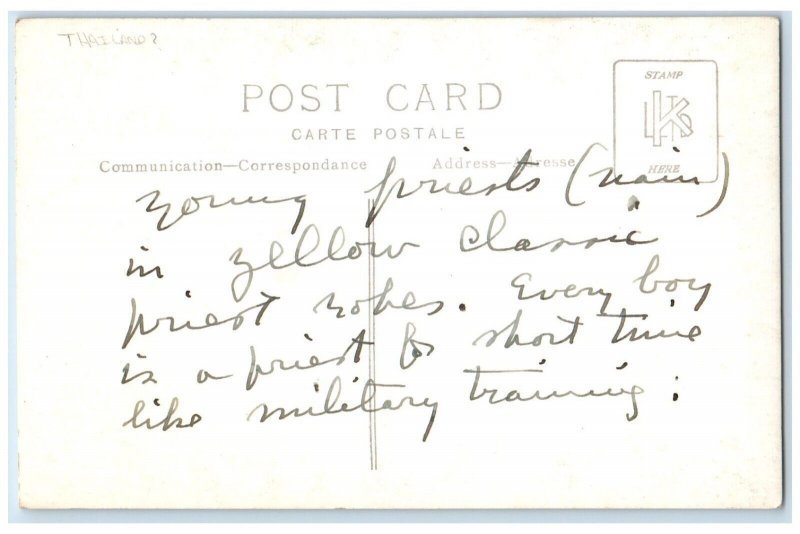 THAILAND?
POST CARD
CARTE POSTALE
STAMP
HERE
Communication—Correspondance
Address—Adresse
young priests (nain)
in yellow classic
priest robes. Every boy
is a priest for short time
like military training.